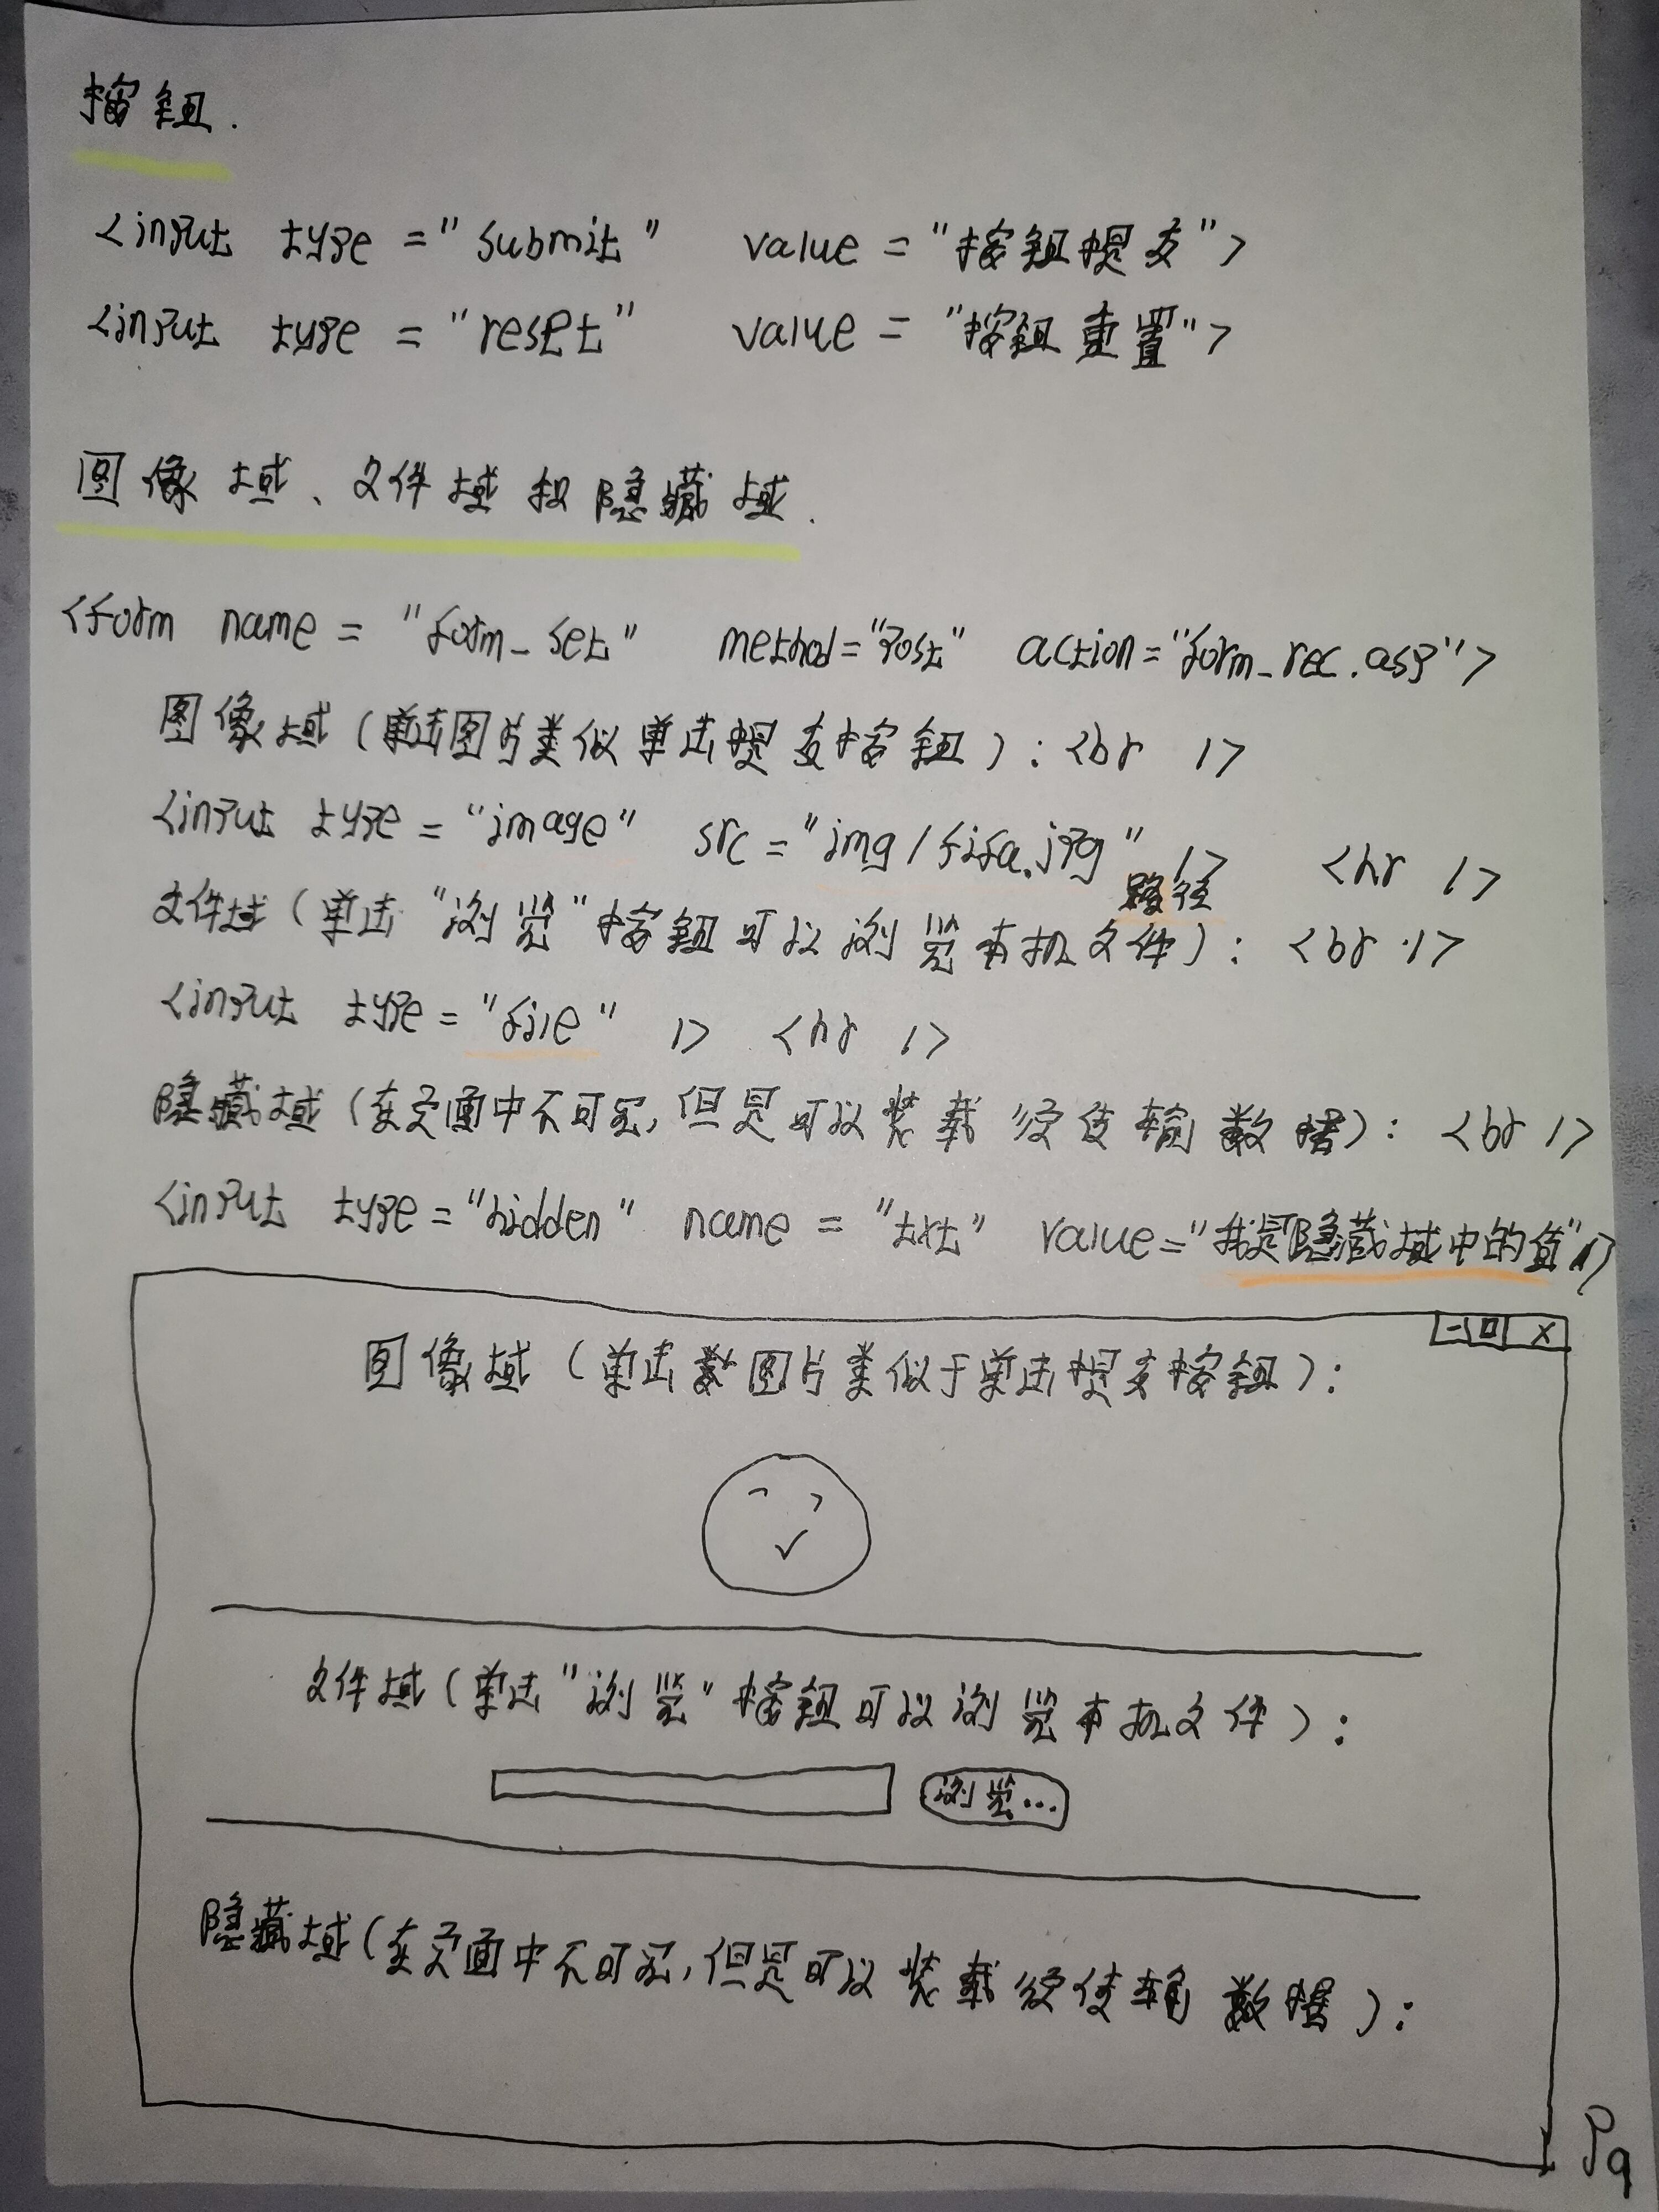 按钮.
<input type="submit" value="按钮提交">
<input type="reset" value="按钮重置">
图像域、文件域和隐藏域.
<form name="form_set" method="post" action="form_rec.asp">
图像域(单击图片类似单击提交按钮):<br />
<input type="image" src="img/fifa.jpg" /> <hr />
路径
文件域(单击"浏览"按钮可以浏览本机文件):<br />
<input type="file" /> <hr />
隐藏域(在页面中不可见,但是可以装载 传输数据):<br />
<input type="hidden" name="txt" value="我是隐藏域中的值"/>
- □ x
图像域(单击 图片类似于单击提交按钮):
文件域(单击"浏览"按钮可以浏览本机文件):
浏览...
隐藏域(在页面中不可见,但是可以装载 传输数据):
P9